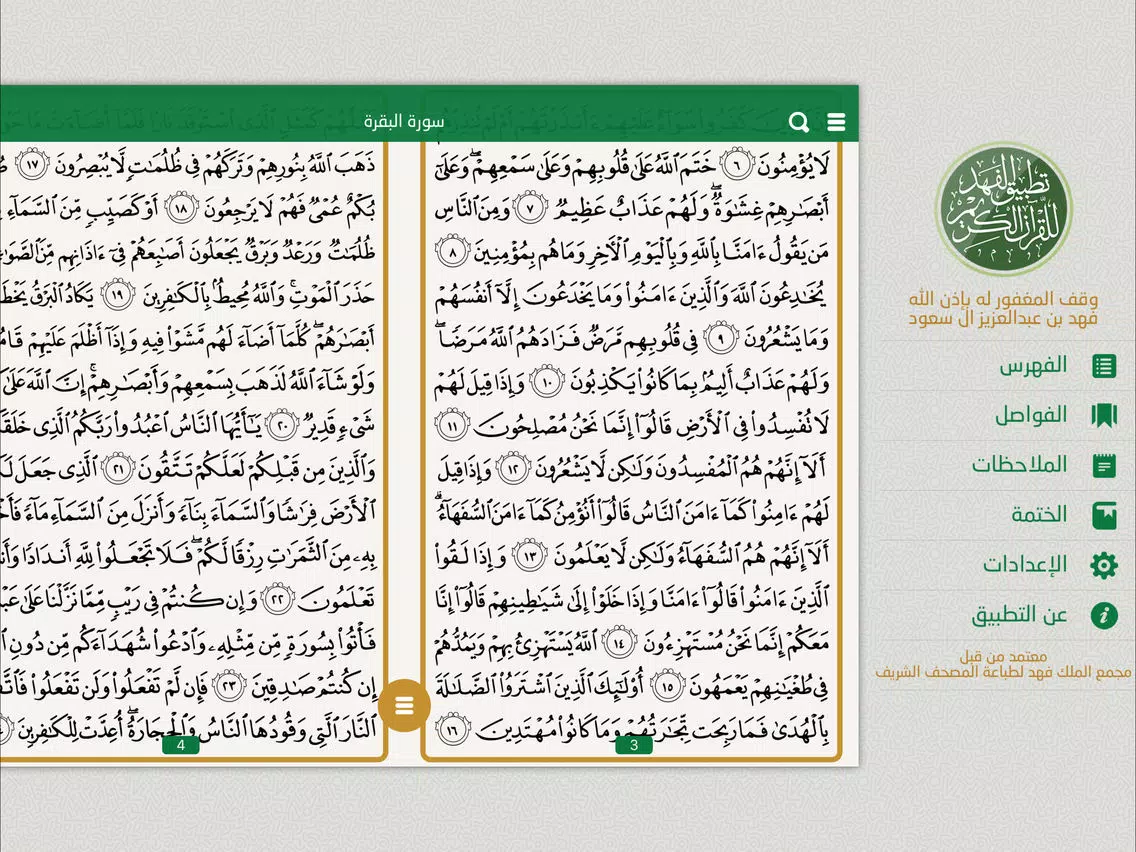 سورة البقرة
لَا يُؤْمِنُونَ ٦ خَتَمَ ٱللَّهُ عَلَىٰ قُلُوبِهِمْ وَعَلَىٰ سَمْعِهِمْۖ وَعَلَىٰٓ
أَبْصَٰرِهِمْ غِشَٰوَةٌۖ وَلَهُمْ عَذَابٌ عَظِيمٌ ٧ وَمِنَ ٱلنَّاسِ
مَن يَقُولُ ءَامَنَّا بِٱللَّهِ وَبِٱلْيَوْمِ ٱلْأَخِرِ وَمَا هُم بِمُؤْمِنِينَ ٨
يُخَٰدِعُونَ ٱللَّهَ وَٱلَّذِينَ ءَامَنُوا۟ وَمَا يَخْدَعُونَ إِلَّآ أَنفُسَهُمْ
وَمَا يَشْعُرُونَ ٩ فِى قُلُوبِهِم مَّرَضٌ فَزَادَهُمُ ٱللَّهُ مَرَضًاۖ
وَلَهُمْ عَذَابٌ أَلِيمٌۢ بِمَا كَانُوا۟ يَكْذِبُونَ ١٠ وَإِذَا قِيلَ لَهُمْ
لَا تُفْسِدُوا۟ فِى ٱلْأَرْضِ قَالُوٓا۟ إِنَّمَا نَحْنُ مُصْلِحُونَ ١١
أَلَآ إِنَّهُمْ هُمُ ٱلْمُفْسِدُونَ وَلَٰكِن لَّا يَشْعُرُونَ ١٢ وَإِذَا قِيلَ
لَهُمْ ءَامِنُوا۟ كَمَآ ءَامَنَ ٱلنَّاسُ قَالُوٓا۟ أَنُؤْمِنُ كَمَآ ءَامَنَ ٱلسُّفَهَآءُۗ
أَلَآ إِنَّهُمْ هُمُ ٱلسُّفَهَآءُ وَلَٰكِن لَّا يَعْلَمُونَ ١٣ وَإِذَا لَقُوا۟
ٱلَّذِينَ ءَامَنُوا۟ قَالُوٓا۟ ءَامَنَّا وَإِذَا خَلَوْا۟ إِلَىٰ شَيَٰطِينِهِمْ قَالُوٓا۟ إِنَّا
مَعَكُمْ إِنَّمَا نَحْنُ مُسْتَهْزِءُونَ ١٤ ٱللَّهُ يَسْتَهْزِئُ بِهِمْ وَيَمُدُّهُمْ
فِى طُغْيَٰنِهِمْ يَعْمَهُونَ ١٥ أُو۟لَٰٓئِكَ ٱلَّذِينَ ٱشْتَرَوُا۟ ٱلضَّلَٰلَةَ
بِٱلْهُدَىٰ فَمَا رَبِحَت تِّجَٰرَتُهُمْ وَمَا كَانُوا۟ مُهْتَدِينَ ١٦
3
ذَهَبَ ٱللَّهُ بِنُورِهِمْ وَتَرَكَهُمْ فِى ظُلُمَٰتٍ لَّا يُبْصِرُونَ ١٧
بُكْمٌ عُمْىٌ فَهُمْ لَا يَرْجِعُونَ ١٨ أَوْ كَصَيِّبٍ مِّنَ ٱلسَّمَآءِ
ظُلُمَٰتٌ وَرَعْدٌ وَبَرْقٌ يَجْعَلُونَ أَصَٰبِعَهُمْ فِىٓ ءَاذَانِهِم مِّنَ
حَذَرَ ٱلْمَوْتِۚ وَٱللَّهُ مُحِيطٌۢ بِٱلْكَٰفِرِينَ ١٩ يَكَادُ ٱلْبَرْقُ
أَبْصَٰرَهُمْۖ كُلَّمَآ أَضَآءَ لَهُم مَّشَوْا۟ فِيهِ وَإِذَآ أَظْلَمَ عَلَيْهِمْ
وَلَوْ شَآءَ ٱللَّهُ لَذَهَبَ بِسَمْعِهِمْ وَأَبْصَٰرِهِمْۚ إِنَّ ٱللَّهَ عَلَىٰ
شَىْءٍ قَدِيرٌ ٢٠ يَٰٓأَيُّهَا ٱلنَّاسُ ٱعْبُدُوا۟ رَبَّكُمُ ٱلَّذِى
وَٱلَّذِينَ مِن قَبْلِكُمْ لَعَلَّكُمْ تَتَّقُونَ ٢١ ٱلَّذِى جَعَلَ
ٱلْأَرْضَ فِرَٰشًا وَٱلسَّمَآءَ بِنَآءً وَأَنزَلَ مِنَ ٱلسَّمَآءِ مَآءً
بِهِۦ مِنَ ٱلثَّمَرَٰتِ رِزْقًا لَّكُمْۖ فَلَا تَجْعَلُوا۟ لِلَّهِ أَندَادًا
تَعْلَمُونَ ٢٢ وَإِن كُنتُمْ فِى رَيْبٍ مِّمَّا نَزَّلْنَا عَلَىٰ
فَأْتُوا۟ بِسُورَةٍ مِّن مِّثْلِهِۦ وَٱدْعُوا۟ شُهَدَآءَكُم مِّن دُونِ
إِن كُنتُمْ صَٰدِقِينَ ٢٣ فَإِن لَّمْ تَفْعَلُوا۟ وَلَن تَفْعَلُوا۟
ٱلنَّارَ ٱلَّتِى وَقُودُهَا ٱلنَّاسُ وَٱلْحِجَارَةُۖ أُعِدَّتْ لِلْكَٰفِرِينَ
4
تطبيق الفهد
للقرآن الكريم
وقف المغفور له بإذن الله
فهد بن عبدالعزيز ال سعود
الفهرس
الفواصل
الملاحظات
الختمة
الإعدادات
عن التطبيق
معتمد من قبل
مجمع الملك فهد لطباعة المصحف الشريف